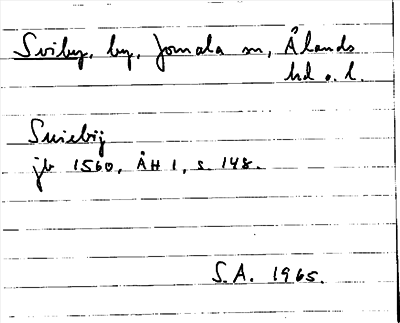 Sviby, by, Jomala sn, Ålands
hd o. l.
Suiebij
jb 1560, ÅH 1, s. 148.
S.A. 1965.